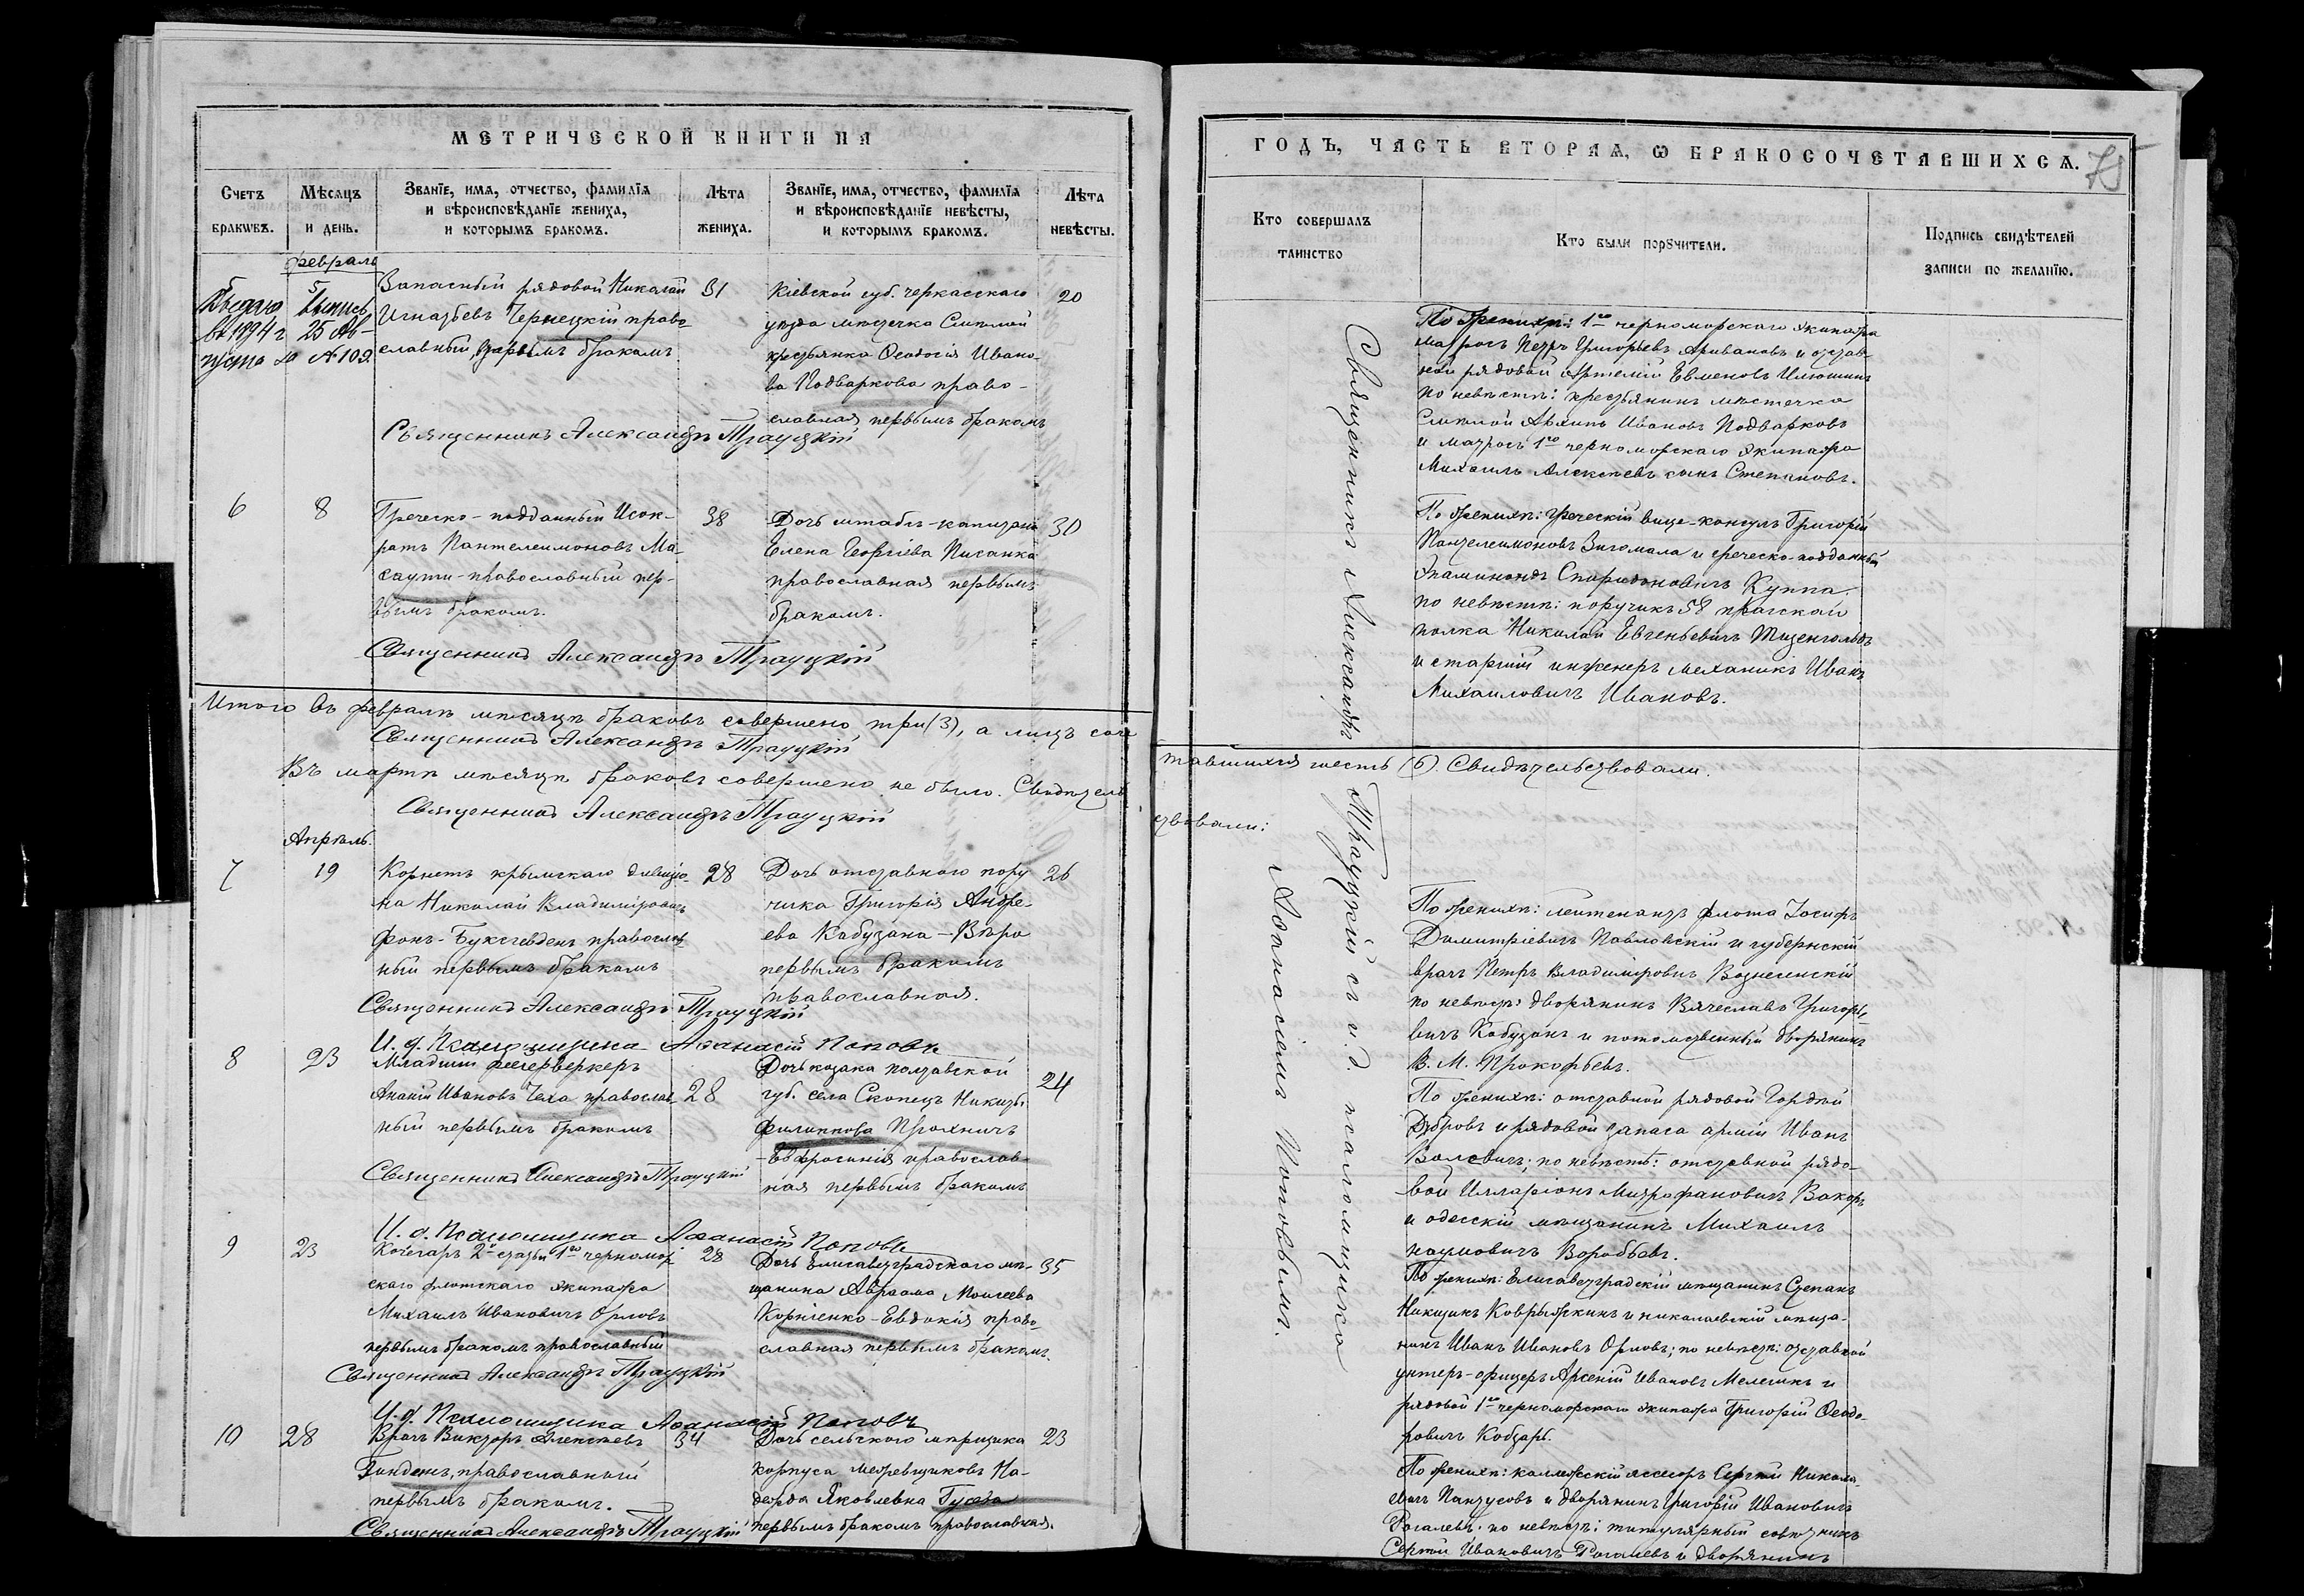 МЕТРИЧЕСКОЙ КНИГИ НА
Счетъ браквъ.
Мѣсѧцъ и день.
Званїе, имѧ, отчество, фамилїѧ и вѣроисповѣданїе жениха, и которымъ бракомъ.
Лѣта жениха.
Званїе, имѧ, отчество, фамилїѧ и вѣроисповѣданїе невѣсты, и которымъ бракомъ.
Лѣта невѣсты.
февраль
5
Запасный рядовой Николай 31
Игнатьевъ Чернецкій право-
славный, вторымъ бракомъ.
въ 1894 г 25 Ав-
густа за № 109.
Кіевской губ. черкасскаго 20
уѣзда мѣстечка Смѣлой
крестьянка Ѳеодосія Ивано-
ва Подваркова право-
славная первымъ бракомъ
Священникъ Александръ Трауцкій
6 8
Греческо-подданный Исок-
ратъ Пантелеимоновъ Ма-
саути-православный пер-
вымъ бракомъ.
38
Дочь штабъ-капитана
Елена Георгіева Писанка
православная первымъ
бракомъ.
30
Священникъ Александръ Трауцкій
Итого въ февралѣ мѣсяцѣ браковъ совершено три (3), а лицъ соче
Священникъ Александръ Трауцкій
Въ мартѣ мѣсяцѣ браковъ совершено не было. Свидѣтель
Священникъ Александръ Трауцкій
Апрѣль.
7 19
Корнетъ крымскаго дивизіо-
на Николай Владиміровичъ
фонъ-Буксгевденъ православ
ный первымъ бракомъ
28
Дочь отставного пору
чика Григорія Андре-
ева Кабузана-Вѣра
первымъ бракомъ
православная.
26
Священникъ Александръ Трауцкій
И. д. Псаломщика Аѳанасій Поповъ
8 23
Младшій фейерверкеръ
Ананій Ивановъ Чеха православ-
ный первымъ бракомъ
28
Дочь козака полтавской
губ. села Скопецъ Никиты
Филиппова Прохничъ
-Евфросинія православ-
ная первымъ бракомъ
24
Священникъ Александръ Трауцкій
И. д. Псаломщика Аѳанасій Поповъ
9 23
Кочегаръ 2й статьи 1го черномор-
скаго флотскаго экипажа
Михаилъ Ивановичъ Орловъ
первымъ бракомъ православный
28
Дочь Елисаветградского мѣ-
щанина Авраама Моисеева
Корніенко-Евдокія право-
славная первымъ бракомъ.
35
Священникъ Александръ Трауцкій
И. д. Псаломщика Аѳанасій Поповъ
10 28
Врачъ Викторъ Алексѣевъ
Линденъ, православный
первымъ бракомъ.
34
Дочь сельского
корпуса межевщиковъ На-
дежда Яковлевна Гусева
первымъ бракомъ православная.
23
Священникъ Александръ Трауцкій
ГОДЪ, ЧАСТЬ ВТОРАѦ, Ѡ БРАКОСОЧЕТАВШИХСѦ.
75
Кто совершалъ таинство
Кто были порꙋчители.
Подпись свидѣтелей записи по желанїю.
Священникъ Александръ Трауцкій съ и. д. псаломщика
Аѳанасіемъ Поповымъ.
По женихѣ: 1го черноморскаго экипажа
матросъ Петръ Григорьевъ Аривановъ и отстав-
ной рядовой Артемій Евменовъ Илюшинъ
по невѣстѣ: крестьянинъ мѣстечка
Смѣлой Архипъ Ивановъ Подварковъ
и матросъ 1го черноморскаго экипажа
Михаилъ Алексѣевъ сынъ Степановъ.
По женихѣ: греческій вице-консулъ Григорій
Пантелеимоновъ Зигомала и греческо-подданный
Эпаминондъ Спиридоновичъ Куппа.
по невѣстѣ: поручикъ 58 прагскаго
полка Николай Евгеньевичъ Тизенгольдъ
и старшій инженеръ механикъ Иванъ
Михаиловичъ Ивановъ.
тавшихся шесть (6). Свидѣтельствовали.
ствовали:
По женихѣ: лейтенантъ флота Іосифъ
Димитріевичъ Павловскій и губернскій
врачъ Петръ Владиміровичъ Вознесенскій
по невѣстѣ: дворянинъ Вячеславъ Григорье-
вичъ Кабузанъ и потомственный дворянинъ
В. М. Прокофьевъ.
По женихѣ: отставной рядовой Гордѣй
Дубровъ и рядовой запаса арміи Иванъ
Валевичъ; по невѣстѣ: отставной рядо-
вой Илларіонъ Митрофановичъ Вакоръ
и одесскій мѣщанинъ Михаилъ
Наумовичъ Воробьевъ.
По женихѣ: Елисаветградскій мѣщанинъ Степанъ
Никитинъ Коврыжкинъ и николаевскій мѣща-
нинъ Иванъ Ивановъ Орловъ; по невѣстѣ: отставной
унтеръ-офицеръ Арсеній Ивановъ Мелешко и
рядовой 1го черноморскаго экипажа Григорій Ѳеодо-
ровичъ Кобзарь.
По женихѣ: коллежскій ассесоръ Сергѣй Никола-
евичъ Пантусовъ и дворянинъ Григорій Ивановичъ
Рогалевъ; по невѣстѣ: титулярный совѣтникъ
Сергѣй Ивановичъ Рогалевъ и дворянинъ